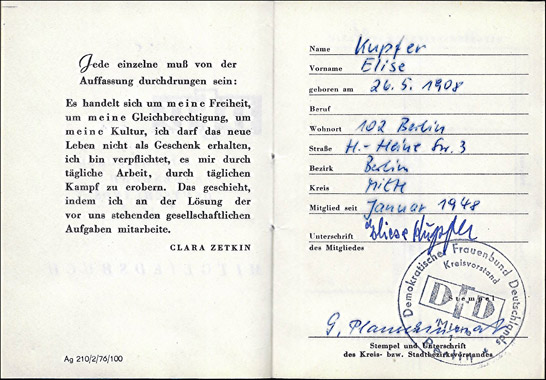 Jede einzelne muß von der
Auffassung durchdrungen sein:
Es handelt sich um meine Freiheit,
um meine Gleichberechtigung, um
meine Kultur, ich darf das neue
Leben nicht als Geschenk erhalten,
ich bin verpflichtet, es mir durch
tägliche Arbeit, durch täglichen
Kampf zu erobern. Das geschieht,
indem ich an der Lösung der
vor uns stehenden gesellschaftlichen
Aufgaben mitarbeite.
CLARA ZETKIN
Ag 210/2/76/100
Name Kupfer
Vorname Elise
geboren am 26. 5. 1908
Beruf
Wohnort 102 Berlin
Straße H.-Heine Str. 3
Bezirk Berlin
Kreis Mitte
Mitglied seit Januar 1948
Unterschrift Eliese Kupfer
des Mitgliedes
Demokratischer Frauenbund Deutschlands
Kreisvorstand
DFD
Stempel
G.
Stempel und Unterschrift
des Kreis- bzw. Stadtbezirksvorstandes